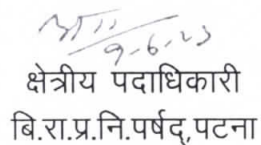 9-6-23
क्षेत्रीय पदाधिकारी
बि.रा.प्र.नि.पर्षद्,पटना